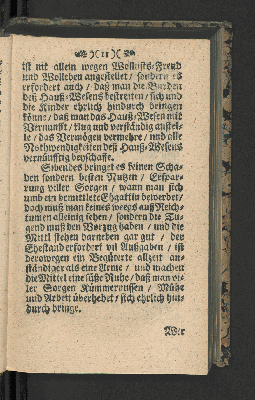 )( 11 )(
ist nit allein wegen Wollusts-Freud
und Wollebens angestellet / sondern es
erfordert auch / daß man die Bürden
deß Hauß-Wesens bestreiten / sich und
die Kinder ehrlich hindurch bringen
könne / daß man das Hauß-Wesen mit
Vernunfft / klug und verständig anstel-
le / das Vermögen vermehre / und alle
Nothwendigkeiten deß Hauß-Wesens
vernünfftig beyschaffe.
Sibendes bringet es keinen Scha-
den sondern besten Nutzen / Erspar-
rung viler Sorgen / wann man sich
umb ein bemittlete Ehgattin bewerbet /
doch muß man keines weegs auf Reich-
tumen alleinig sehen / sondern die Tu-
gend muß den Vorzug haben / und die
Mittl stehen darneben gar gut / der
Ehestand erfordert vil Außgaben / ist
derowegen ein Begüterte allzeit an-
ständiger als eine Arme / und machen
die Mittel eine süsse Ruhe / daß man vi-
ler Sorgen Kümmernussen / Mühe
und Arbeit überhebet / sich ehrlich hin-
durch bringe.
Wer